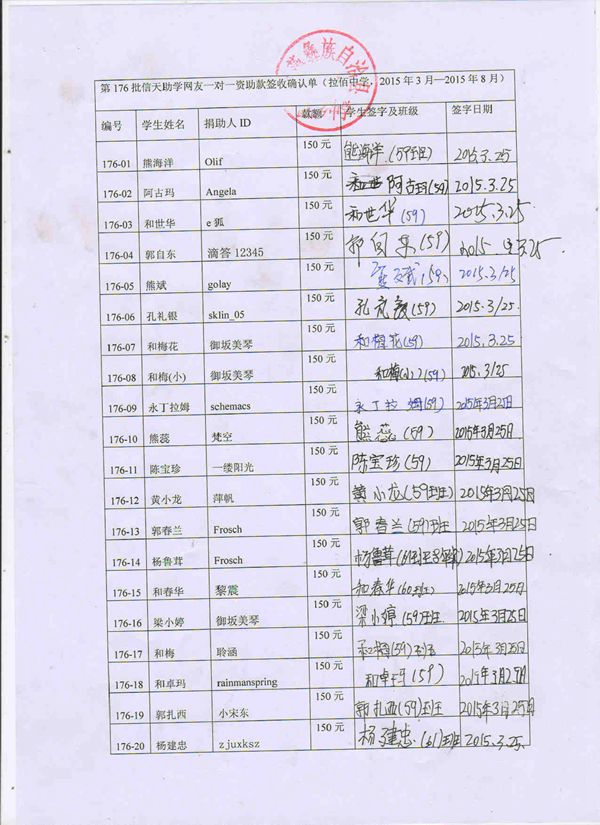 彝族自治县
第 176 批信天助学网友一对一资助款签收确认单（拉佰中学，2015 年 3 月—2015 年 8 月）
编号 学生姓名 捐助人 ID 款额 学生签字及班级 签字日期
176-01 熊海洋 Olif 150 元 熊海洋.(59班) 2015.3.25
176-02 阿古玛 Angela 150 元 阿古玛(59) 2015.3.25
176-03 和世华 e 狐 150 元 和世华(59) 2015.3.25
176-04 郭自东 滴答 12345 150 元 郭自东(59) 2015. 3.25
176-05 熊斌 golay 150 元 (59) 2015.3/25
176-06 孔礼银 sklin_05 150 元 孔礼银(59) 2015.3/25.
176-07 和梅花 御坂美琴 150 元 和梅花(59) 2015.3.25
176-08 和梅(小) 御坂美琴 150 元 和梅(小)(59) 2015.3/25
176-09 永丁拉姆 schemacs 150 元 永丁拉姆(59) 2015年3月25日
176-10 熊蕊 梵空 150 元 熊蕊(59) 2015年3月25日
176-11 陈宝珍 一缕阳光 150 元 陈宝珍(59) 2015年3月25日
176-12 黄小龙 萍帆 150 元 黄小龙(59班) 2015年3月25日
176-13 郭春兰 Frosch 150 元 郭春兰(59)班 2015年3月25日
176-14 杨鲁茸 Frosch 150 元 杨鲁茸(61班 2015年3月25日
176-15 和春华 黎震 150 元 和春华(60班) 2015年3月25日
176-16 梁小婷 御坂美琴 150 元 梁小婷(59)班 2015年3月25日
176-17 和梅 聆涵 150 元 和梅(59)班 2015年3月25日
176-18 和卓玛 rainmanspring 150 元 和卓玛(59) 2015年3月25日
176-19 郭扎西 小宋东 150 元 郭扎西(59)班 2015年3月25日
176-20 杨建忠 zjuxksz 150 元 杨建忠.(61)班 2015.3.25.